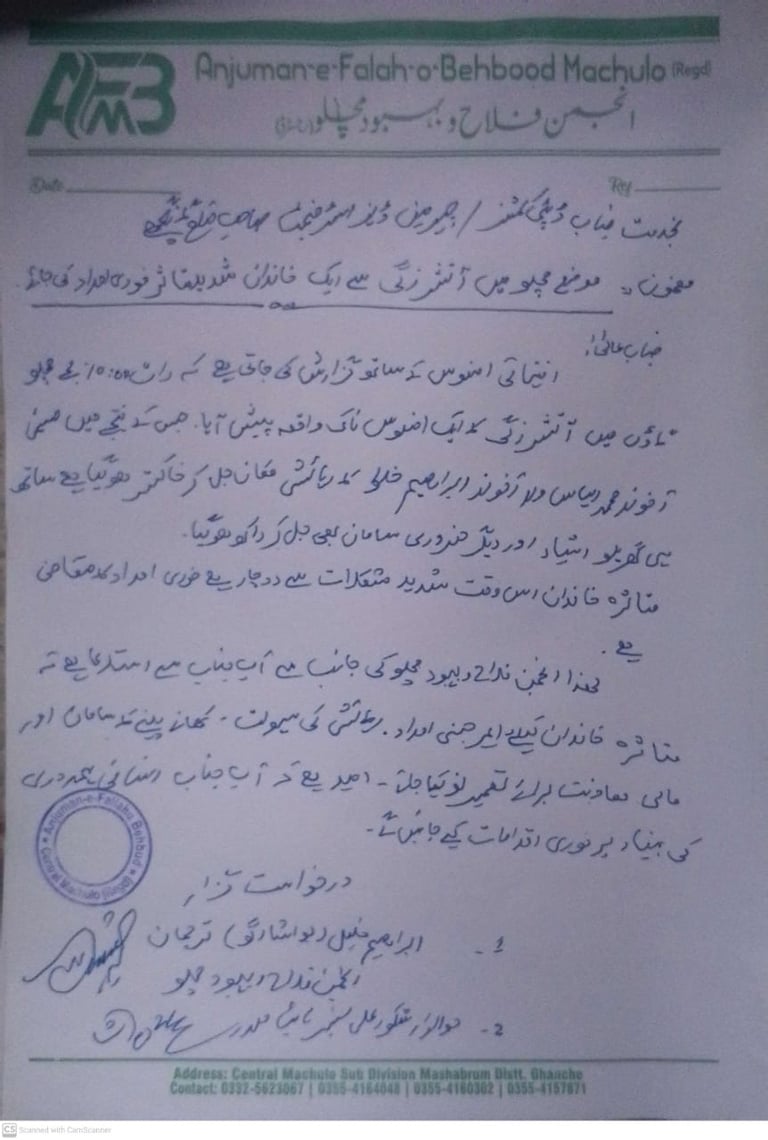 AFMB
Anjuman-e-Falah-o-Behbood Machulo (Regd)
انجمن فلاح و بہبود مچلو (رجسٹرڈ)
Date
Ref
بخدمت جناب ڈپٹی کمشنر / چیرمین ڈیزاسٹر منجمنٹ صاحب ضلع گانگچھے
مضمون :۔ موضع مچلو میں آتشزدگی سے ایک خاندان شدید متاثر فوری امداد کی جائے۔
جناب عالیٰ!
انتہائی افسوس کے ساتھ گزارش کی جاتی ہے کہ رات 10:00 بجے مچلو
ٹاؤن میں آتشزدگی کا ایک افسوس ناک واقعہ پیش آیا۔ جس کے نتیجے میں
آخوند محمد الیاس ولد آخوند ابراہیم کا رہائشی مکان جل کر خاکستر ھوگیا ہے ساتھ
ہی گھریلو اشیاء اور دیگر ضروری سامان بھی جل کر راکھ ھوگیا۔
متاثرہ خاندان اس وقت شدید مشکلات سے دوچار ہے فوری امداد کا متقاضی
ہے۔
لھذا انجمن فلاح و بہبود مچلو کی جانب سے آپ جناب سے استدعا ہے کہ
متاثرہ خاندان کیلئے ایمرجنسی امداد۔ رہائش کی سہولت۔ کھانے پینے کا سامان اور
مالی معاونت برائے تعمیر نو کیا جائے۔ امید ہے کہ آپ جناب انسانی ہمدردی
کی بنیاد پر فوری اقدامات کیے جائیں گے۔
Anjuman-e-Fallahu Behbud
Central Machulo (Regd)
درخواست گزار
1۔ ابراہیم خلیل ترجمان
انجمن فلاح و بہبود مچلو
2۔ حوالدار شکور علی
Address: Central Machulo Sub Division Mashabrum Distt. Ghanche
Contact: 0332-5623067 | 0355-4164048 | 0355-4160302 | 0355-4157871
CS Scanned with CamScanner